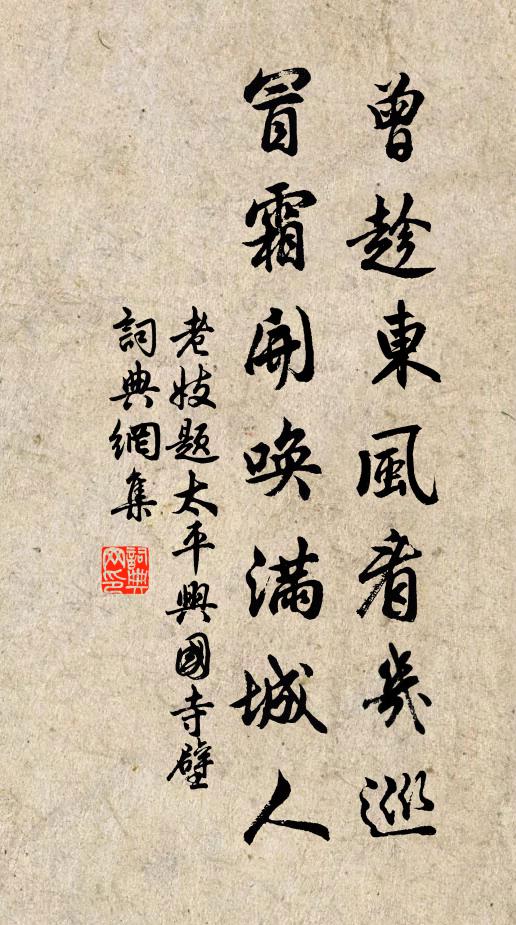 曾趁東風看幾巡
冒霜開喚滿城人
老妓題太平興國寺壁
詞典網集
詞典網印